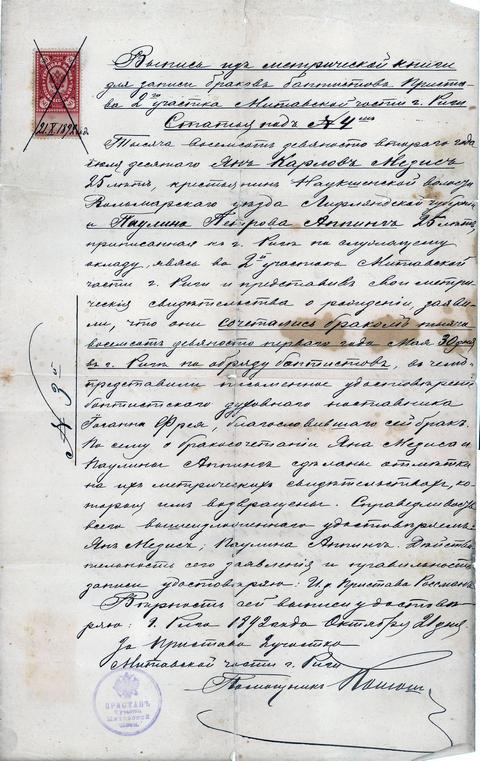 Выпись изъ метрической книги
для записи браковъ баптистовъ Приста-
ва 2го участка Митавской части г. Риги
Статья подъ № 4мъ
Тысяча восемьсотъ девяносто второго года
десятаго Янъ Карловъ Медисъ
25 лѣтъ, крестьянинъ Наукшенской волости
Вольмарскаго уѣзда Лифляндской губерніи
и Паулина Петрова Аппингъ 25 лѣтъ
приписанная къ г. Ригѣ по служащему
окладу, явясь во 2й участокъ Митавской
части г. Риги и представивъ свои метри-
ческія свидѣтельства о рожденіи, заяви-
ли, что они сочетались бракомъ тысяча
восемсотъ девяносто перваго года Мая 30 дня
въ г. Ригѣ по обряду баптистовъ, въ чемъ
представили письменное удостовѣреніе
баптистскаго духовнаго наставника
Іоганна Фрея, благословившаго сей бракъ.
По сему о бракосочетаніи Яна Медиса и
Паулины Аппингъ сдѣланы отмѣтки
на ихъ метрическихъ свидѣтельствахъ, ко-
торыя имъ возвращены. Справедливость
всего вышеизложеннаго удостовѣряемъ:
Янъ Медисъ; Паулина Аппингъ. Дѣйстви-
тельность сего заявленія и правильность
записи удостовѣряю: Пристава
Вѣрность сей выписи удостовѣ-
ряю: г. Рига 1892 года Октября 21 дня.
За Пристава 2 участка
Митавской части г. Риги
Помощникъ
№ 3й
21/X 1892
ПРИСТАВЪ
2 участка
Митавской
части